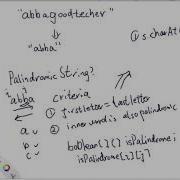 "abbagoodtecher"
① s charAt(
"abba"
Palindromic String?
"abba" criteria
① first letter = last letter
② inner word is also palindromic
a
b
c
boolean[][] isPalindrome;
isPalindrome[i][j]